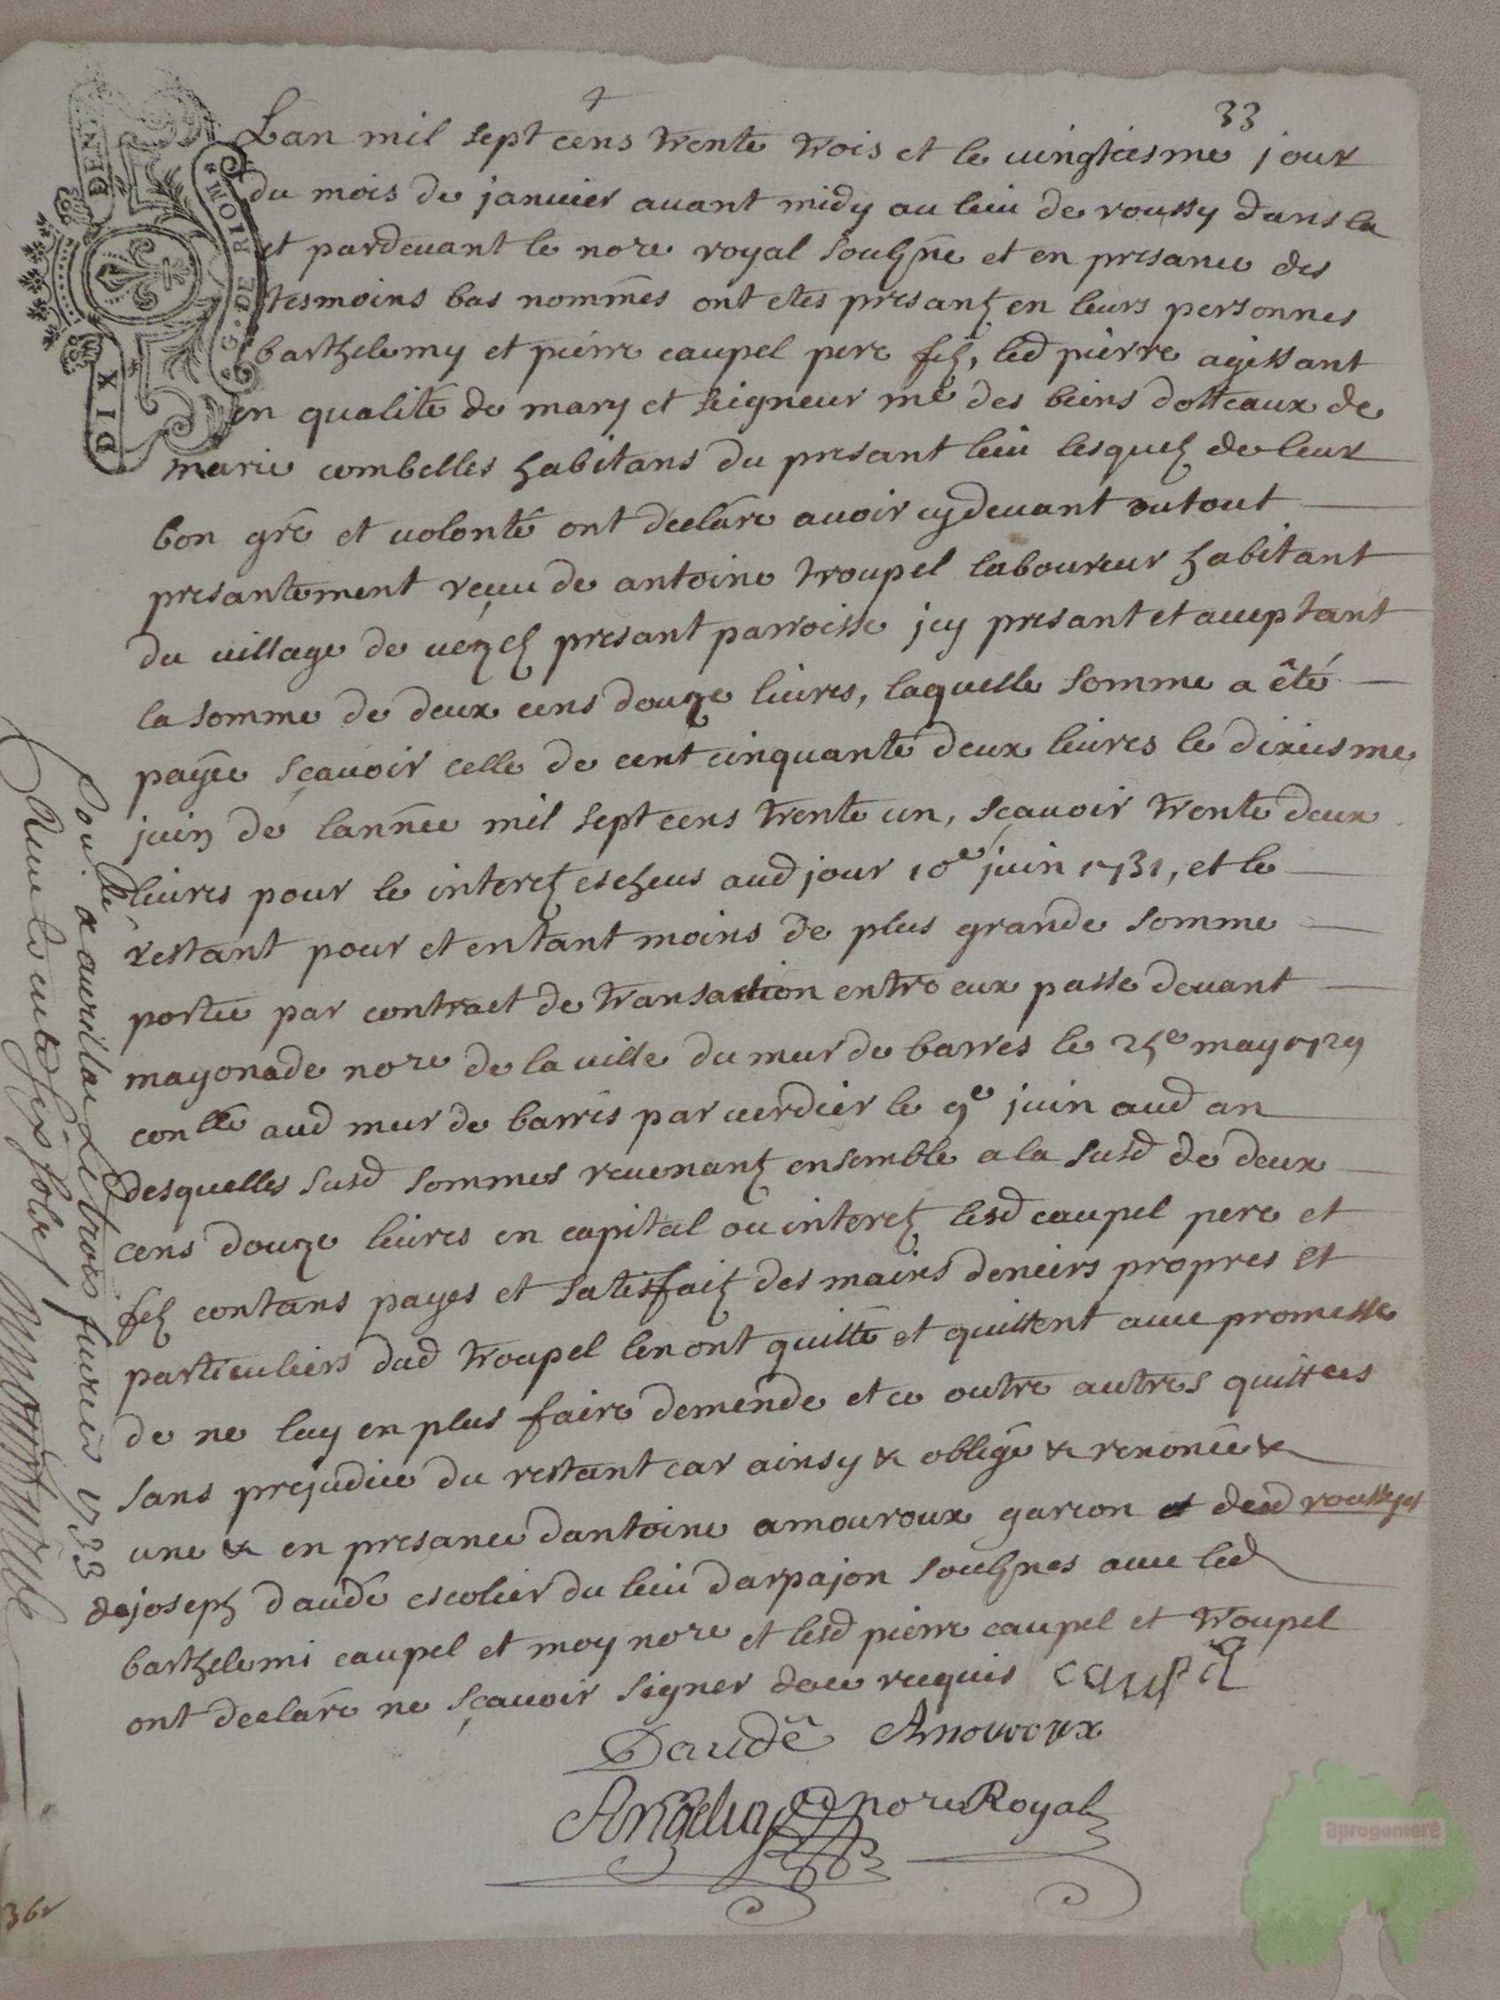 33
Lan mil sept cens trente trois et le vingtiesme jour
du mois de janvier avant midy au lieu de roussy dans la
et pardevant le no.re royal souhz.né et en presance des
tesmoins bas nommés ont etes presantz en leurs personnes
barthelemy et pierre caupel pere filz, led pierre agissant
en qualité de mary et seigneur me des biens dotteaux de
marie combelles habitans du presant lieu lesquelz de leur
bon gré et volonté ont declaré avoir cy devant ou tout
presantement receu de antoine troupel laboureur habitant
du village de vezelz presant parroisse jcy presant et acceptant
la somme de deux cens douze livres, laquelle somme a êté
payée sçavoir celle de cent cinquante deux livres le dixiesme
juin de lannée mil sept cens trente un, sçavoir trente deux
livres pour le interetz escheus aud jour 10e juin 1731, et le
restant pour et en tant moins de plus grande somme
portée par contract de transaction entre eux passé devant
mayonade no.re de la ville du mur de barres le 25e may 1729
con.llé aud mur de barres par verdier le 9e juin aud an
desquelles susd sommes revenantz ensemble a la susd de deux
cens douze livres en capital ou interetz lesd caupel pere et
filz contans payes et satisfaitz des mains deneirs propres et
particuliers dud troupel len ont quitté et quittent avec promesse
de ne luy en plus faire demende et ce outre autres quittces
sans prejudice du restant car ainsy & obligé & renoncé &
une & en presance dantoine amouroux garcon dud roussy et
de joseph daudé escolier du lieu darpajon souhz.nes avec led
barthelemi caupel et moy no.re et lesd pierre caupel et troupel
ont declaré ne sçavoir signer de ce requis caupel
Daudé Amouroux
no.re Royal
G. DE RIOM
DIX DEN.
a aurillac le trois fevrier 1733
36
aprogemere